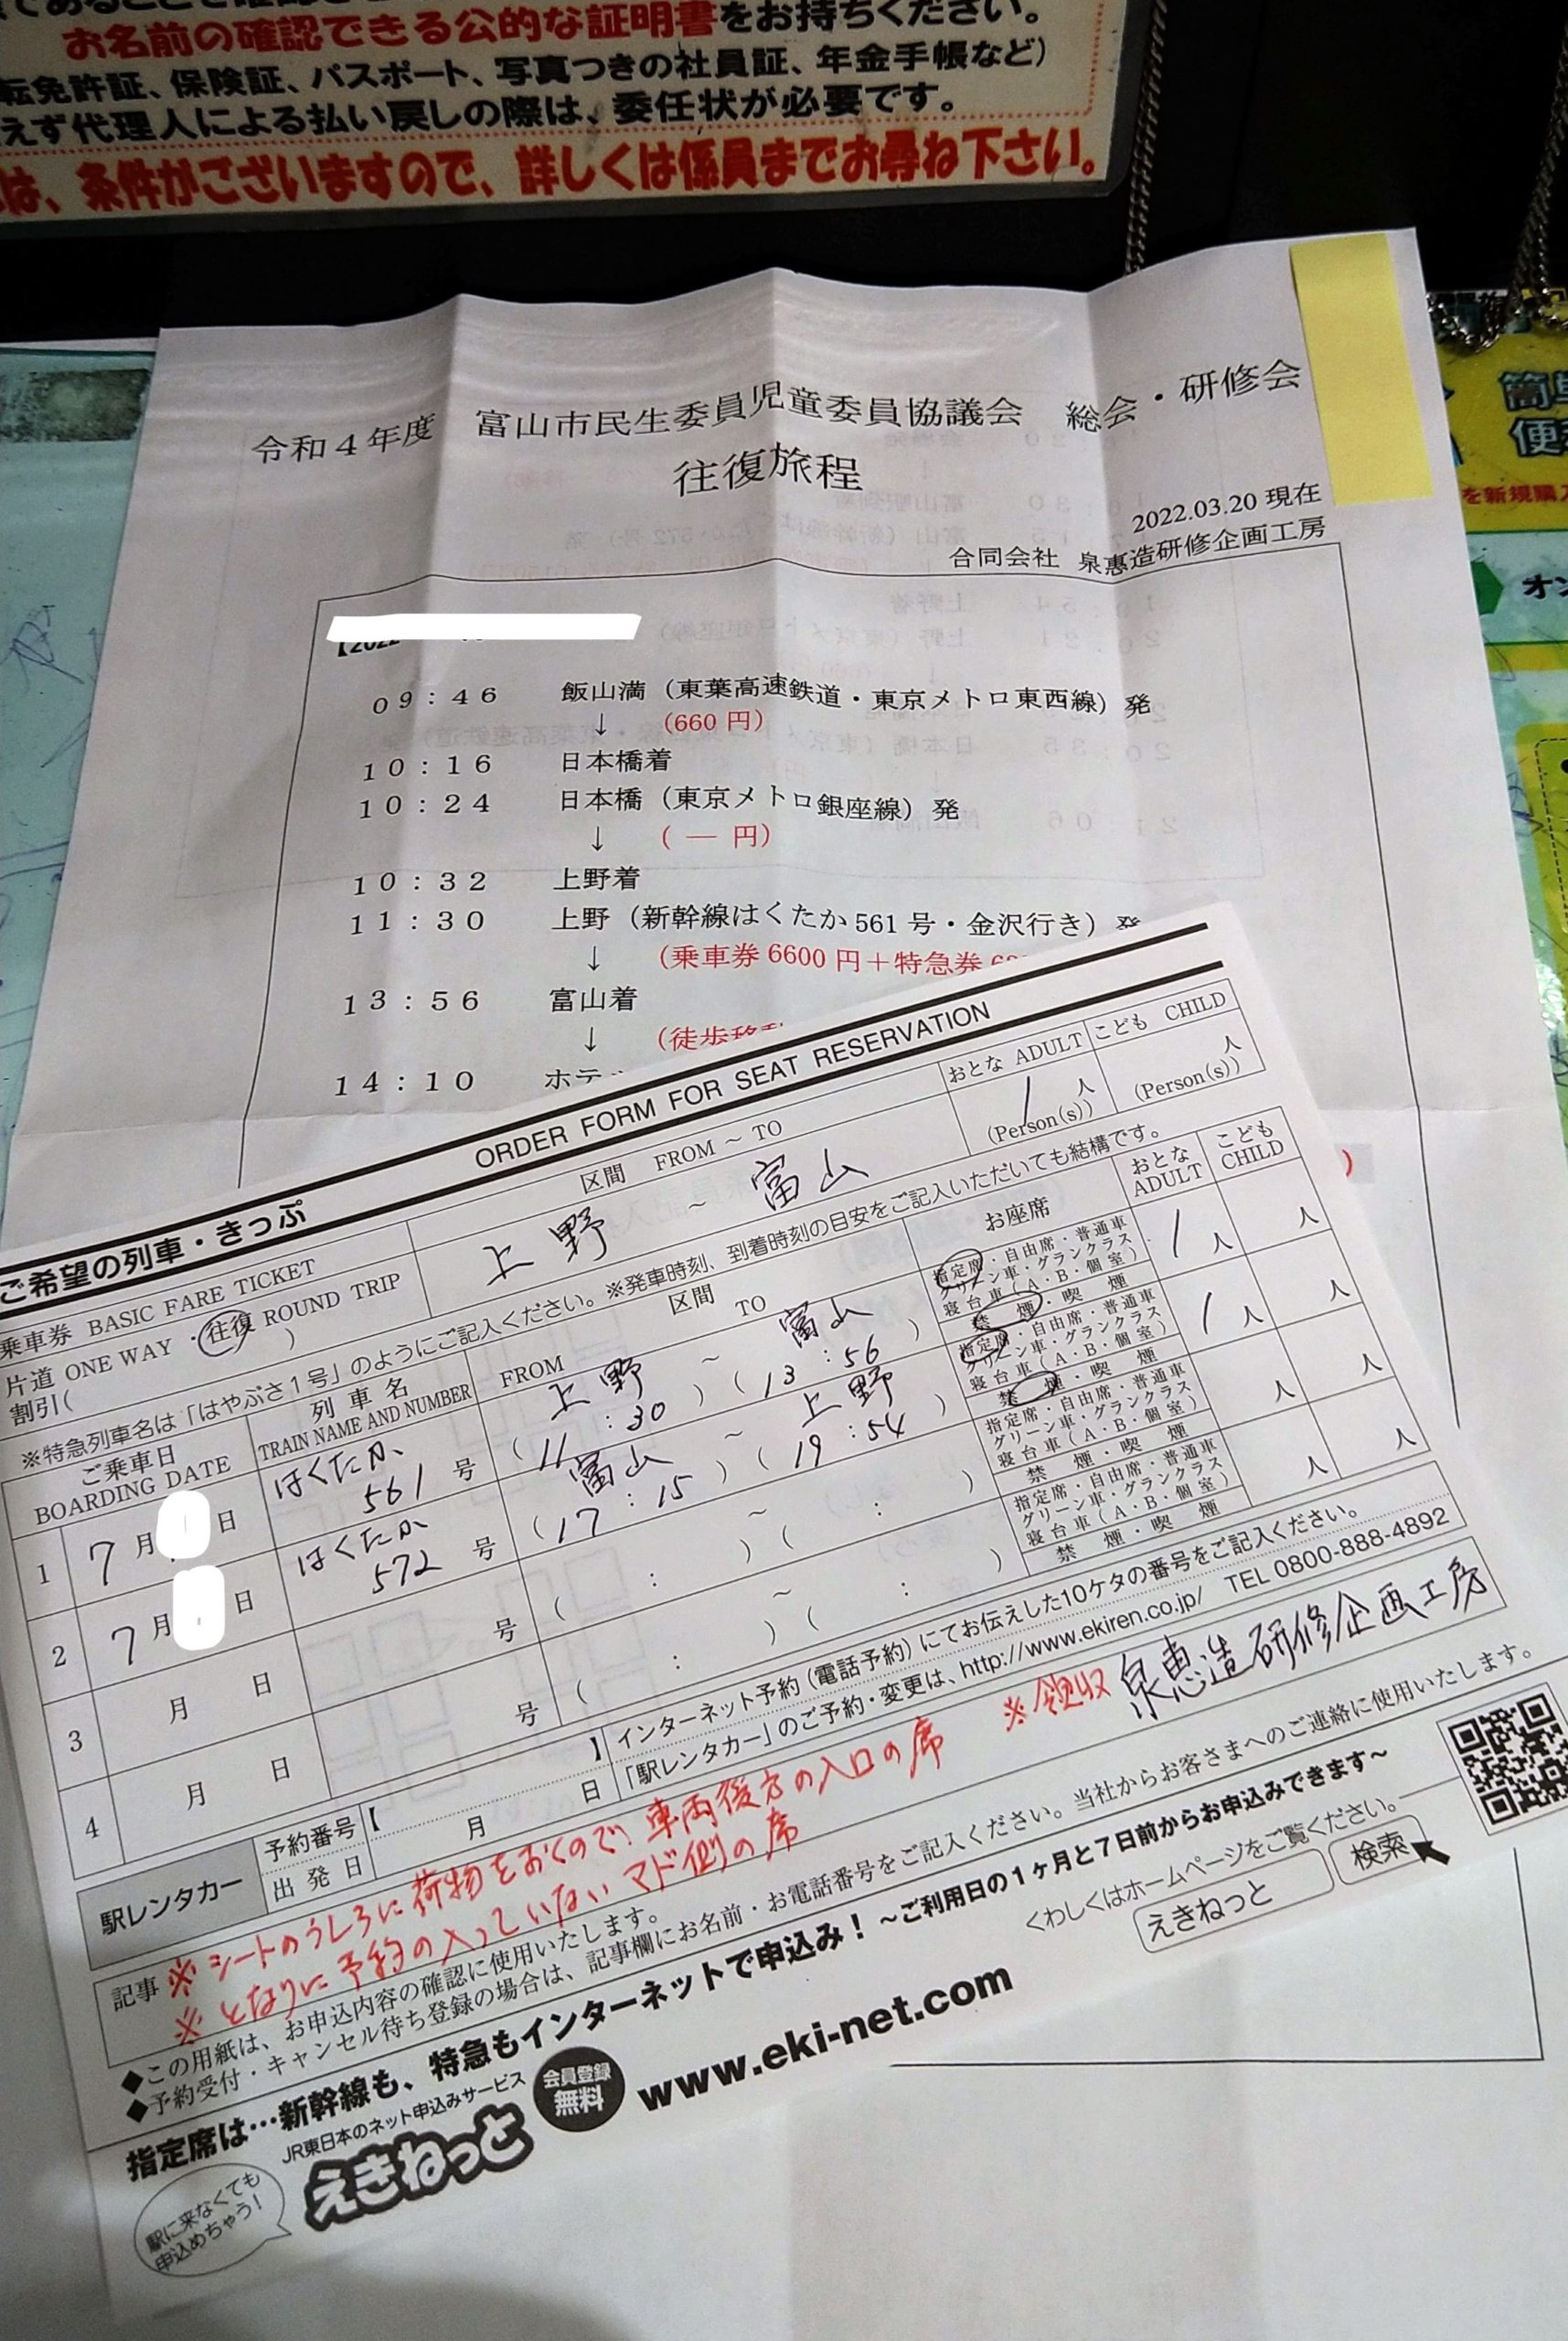 お名前の確認できる公的な証明書をお持ちください。
転免許証、保険証、パスポート、写真つきの社員証、年金手帳など)
えず代理人による払い戻しの際は、委任状が必要です。
は、条件がございますので、詳しくは係員までお尋ね下さい。
簡単
便利
を新規購入
オン
令和4年度 富山市民生委員児童委員協議会 総会・研修会
往復旅程
2022.03.20 現在
合同会社 泉惠造研修企画工房
【2022
09:46 飯山満(東葉高速鉄道・東京メトロ東西線)発
↓ (660円)
10:16 日本橋着
10:24 日本橋(東京メトロ銀座線)発
↓ (―円)
10:32 上野着
11:30 上野(新幹線はくたか561号・金沢行き)発
↓ (乗車券6600円+特急券
13:56 富山着
↓ (徒歩移動
14:10 ホテ
ご希望の列車・きっぷ ORDER FORM FOR SEAT RESERVATION
乗車券 BASIC FARE TICKET 区間 FROM ~ TO おとな ADULT こども CHILD
片道 ONE WAY ・ 往復 ROUND TRIP 上野 ~ 富山 1人 (Person(s)) 人 (Person(s))
割引( )
※特急列車名は「はやぶさ1号」のようにご記入ください。※発車時刻、到着時刻の目安をご記入いただいても結構です。
ご乗車日 BOARDING DATE 列車名 TRAIN NAME AND NUMBER 区間 FROM TO お座席 おとな ADULT こども CHILD
1 7月 日 はくたか 561号 上野 (11:30) ~ 富山 (13:56) 指定席・自由席・普通車 グリーン車・グランクラス 寝台車(A・B・個室) 禁煙・喫煙 1人 人
2 7月 日 はくたか 572号 富山 (17:15) ~ 上野 (19:54) 指定席・自由席・普通車 グリーン車・グランクラス 寝台車(A・B・個室) 禁煙・喫煙 1人 人
3 月 日 号 ( : ) ~ ( : ) 指定席・自由席・普通車 グリーン車・グランクラス 寝台車(A・B・個室) 禁煙・喫煙 人 人
4 月 日 号 ( : ) ~ ( : ) 指定席・自由席・普通車 グリーン車・グランクラス 寝台車(A・B・個室) 禁煙・喫煙 人 人
駅レンタカー 予約番号【 】 インターネット予約(電話予約)にてお伝えした10ケタの番号をご記入ください。
出発日 月 日 「駅レンタカー」のご予約・変更は、http://www.ekiren.co.jp/ TEL 0800-888-4892
記事 ※シートのうしろに荷物をおくので、車両後方の入口の席 ※領収 泉恵造研修企画工房
※となりに予約の入っていないマド側の席
◆この用紙は、お申込内容の確認に使用いたします。
◆予約受付・キャンセル待ち登録の場合は、記事欄にお名前・お電話番号をご記入ください。当社からお客さまへのご連絡に使用いたします。
指定席は…新幹線も、特急もインターネットで申込み! ~ご利用日の1ヶ月と7日前からお申込みできます~
駅に来なくても
申込めちゃう!
JR東日本のネット申込みサービス
えきねっと
会員登録
無料
www.eki-net.com
くわしくはホームページをご覧ください。
えきねっと 検索